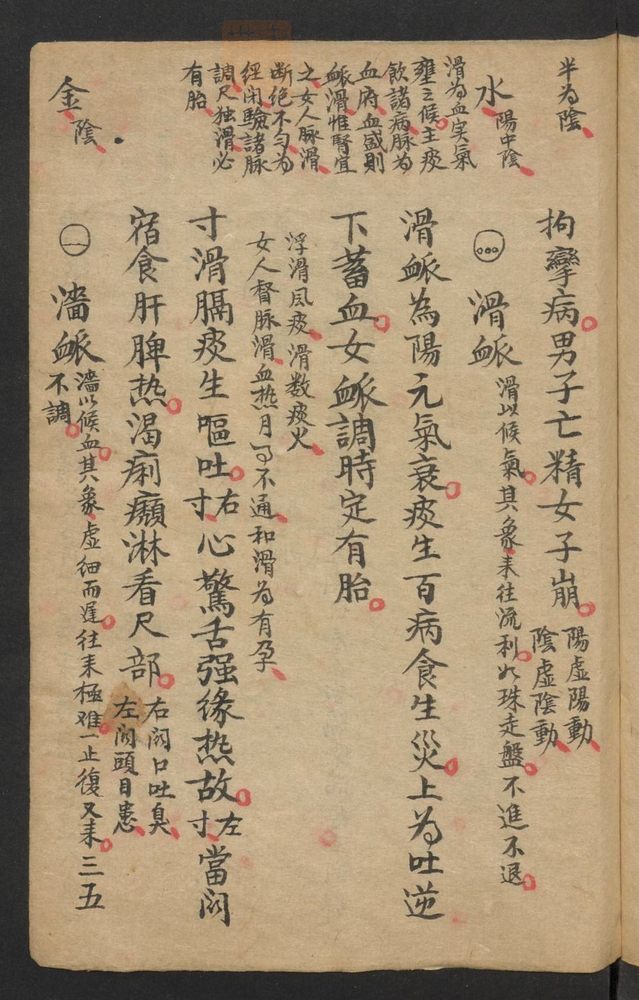 半為陰
水 陽中陰
滑為血实氣
壅之候主痰
飲諸病脉為
血府血盛則
脈滑惟腎宜
之女人脉滑
断绝不匀为
經闭驗諸脉
調尺独滑必
有胎
金 陰
拘攣病男子亡精女子崩 陽虛陽動
陰虛陰動
滑脈 滑以候氣其象来往流利如珠走盤不進不退
滑脈為陽元氣衰痰生百病食生災上为吐逆
下蓄血女脈調時定有胎
浮滑風痰滑数痰火
女人督脉滑血热月可不通和滑为有孕
寸滑膈痰生嘔吐右寸心驚舌强缘热故左寸當関
宿食肝脾热渴痢癩淋看尺部 右関口吐臭
左関頭目患
濇脈 濇以候血其象虛细而遲往来極难一止復又来三五
不調